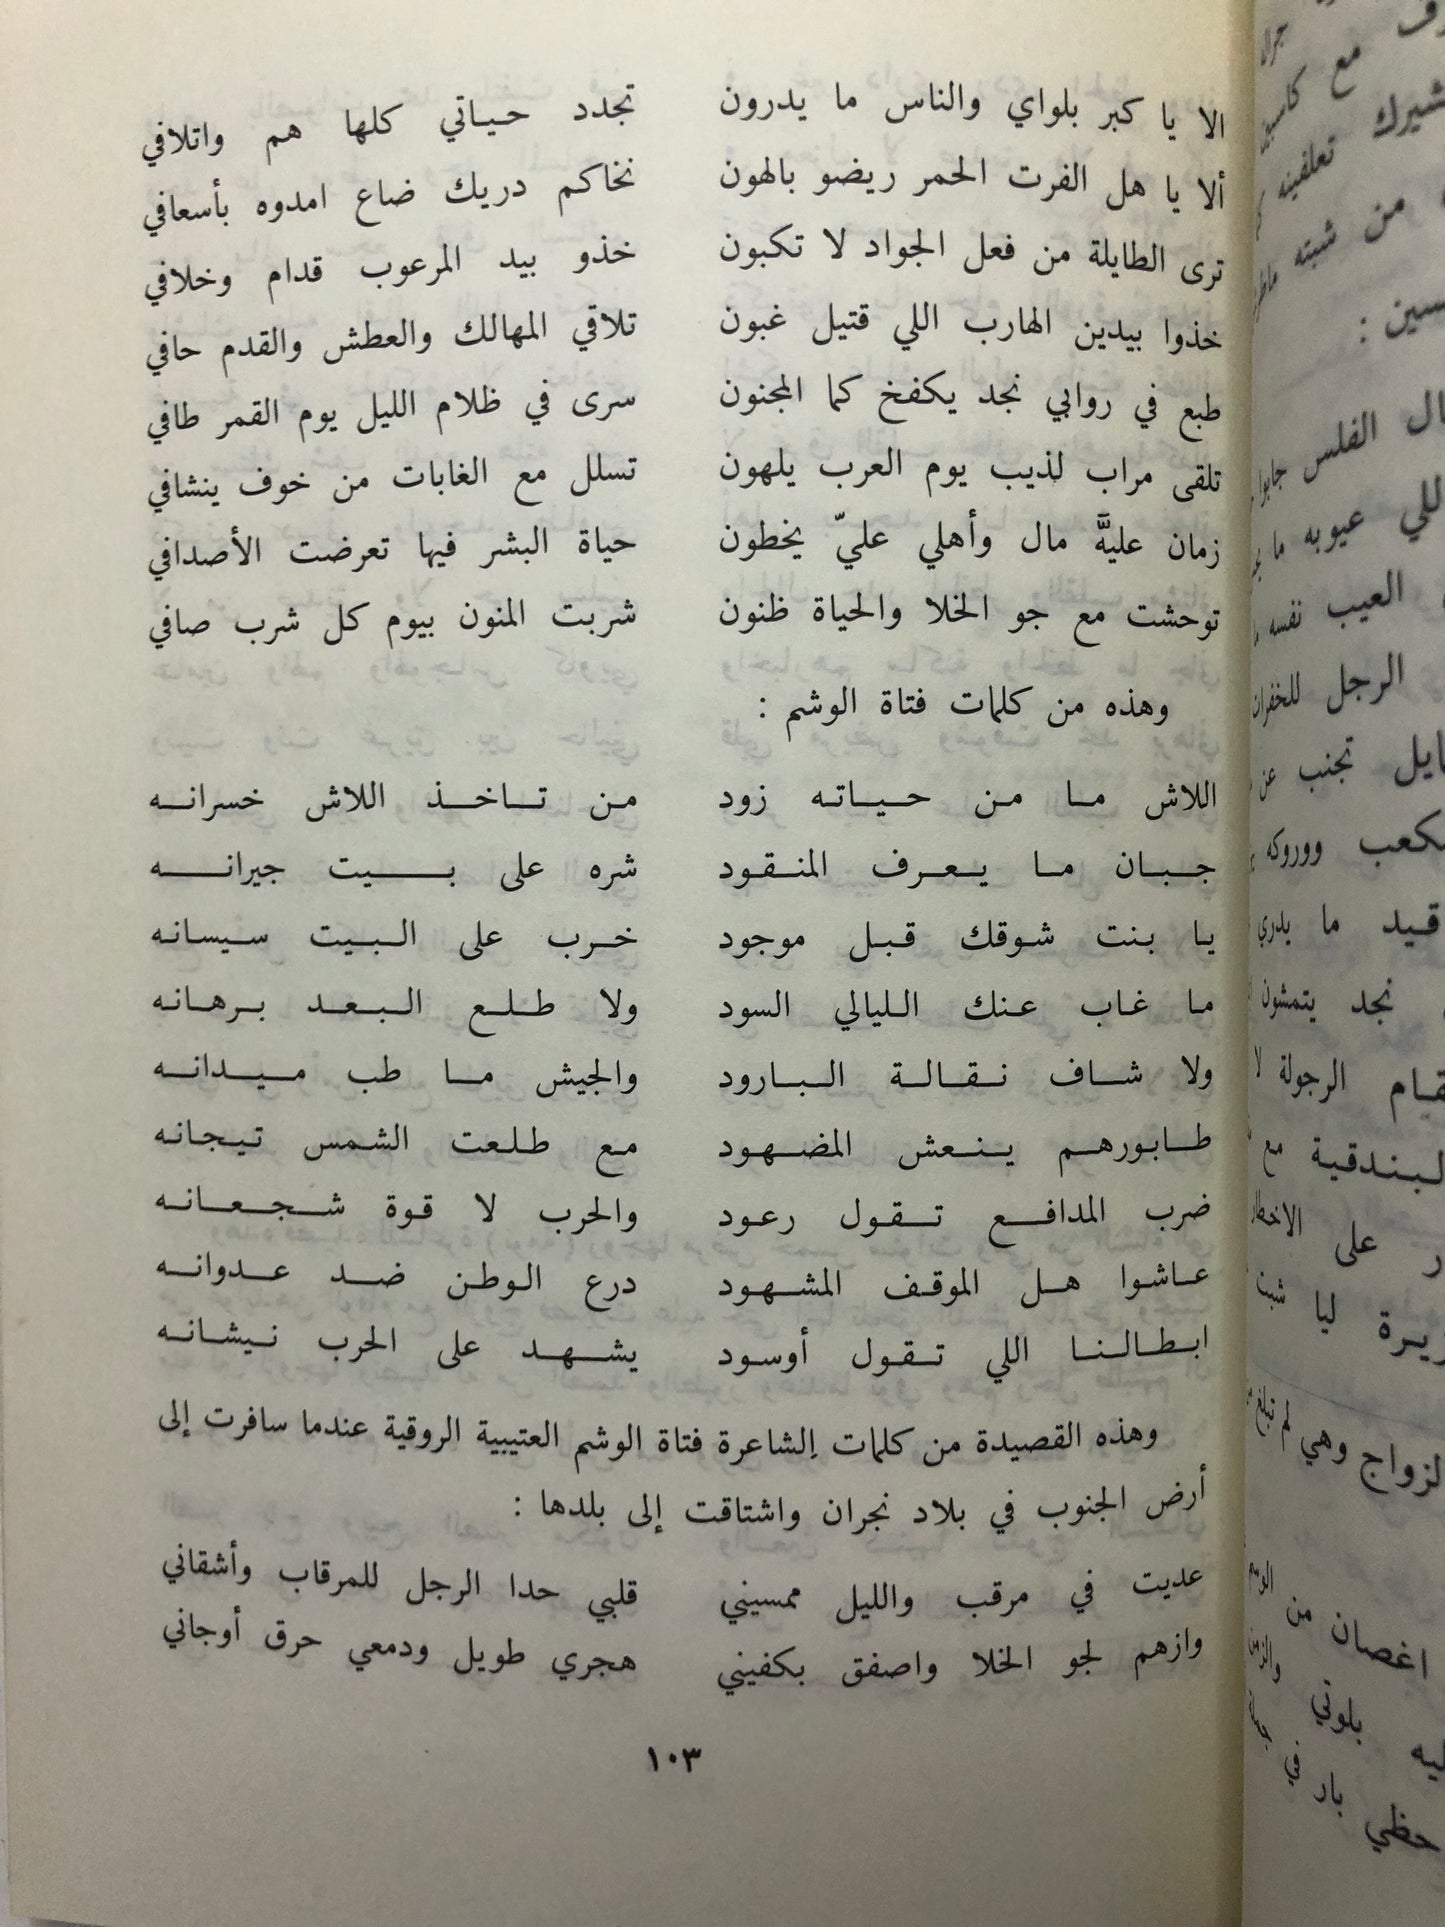 الا يا كبر بلواي والناس ما يدرون تجدد حياتي كلها هم واتلافي
ألا يا هل الفرت الحمر ريضو بالهون نخاكم دريك ضاع امدوه بأسعافي
ترى الطايلة من فعل الجواد لا تكبون خذو بيد المرعوب قدام وخلافي
خذوا بيدين الهارب اللي قتيل غبون تلاقي المهالك والعطش والقدم حافي
طبع في روابي نجد يكفخ كما المجنون سرى في ظلام الليل يوم القمر طافي
تلقى مراب لذيب يوم العرب يلهون تسلل مع الغابات من خوف ينشافي
زمان عليهَّ مال وأهلي عليّ يخطون حياة البشر فيها تعرضت الأصدافي
توحشت مع جو الخلا والحياة ظنون شربت المنون بيوم كل شرب صافي
وهذه من كلمات فتاة الوشم :
اللاش ما من حياته زود من تاخذ اللاش خسرانه
جبان ما يعرف المنقود شره على بيت جيرانه
يا بنت شوقك قبل موجود خرب على البيت سيسانه
ما غاب عنك الليالي السود ولا طلع البعد برهانه
ولا شاف نقالة البارود والجيش ما طب ميدانه
طابورهم ينعش المضهود مع طلعت الشمس تيجانه
ضرب المدافع تقول رعود والحرب لا قوة شجعانه
عاشوا هل الموقف المشهود درع الوطن ضد عدوانه
ابطالنا اللي تقول أوسود يشهد على الحرب نيشانه
وهذه القصيدة من كلمات الشاعرة فتاة الوشم العتيبية الروقية عندما سافرت إلى
أرض الجنوب في بلاد نجران واشتاقت إلى بلدها :
عديت في مرقب والليل ممسيني قلبي حدا الرجل للمرقاب وأشقاني
وازهم لجو الخلا واصفق بكفيني هجري طويل ودمعي حرق أوجاني
١٠٣